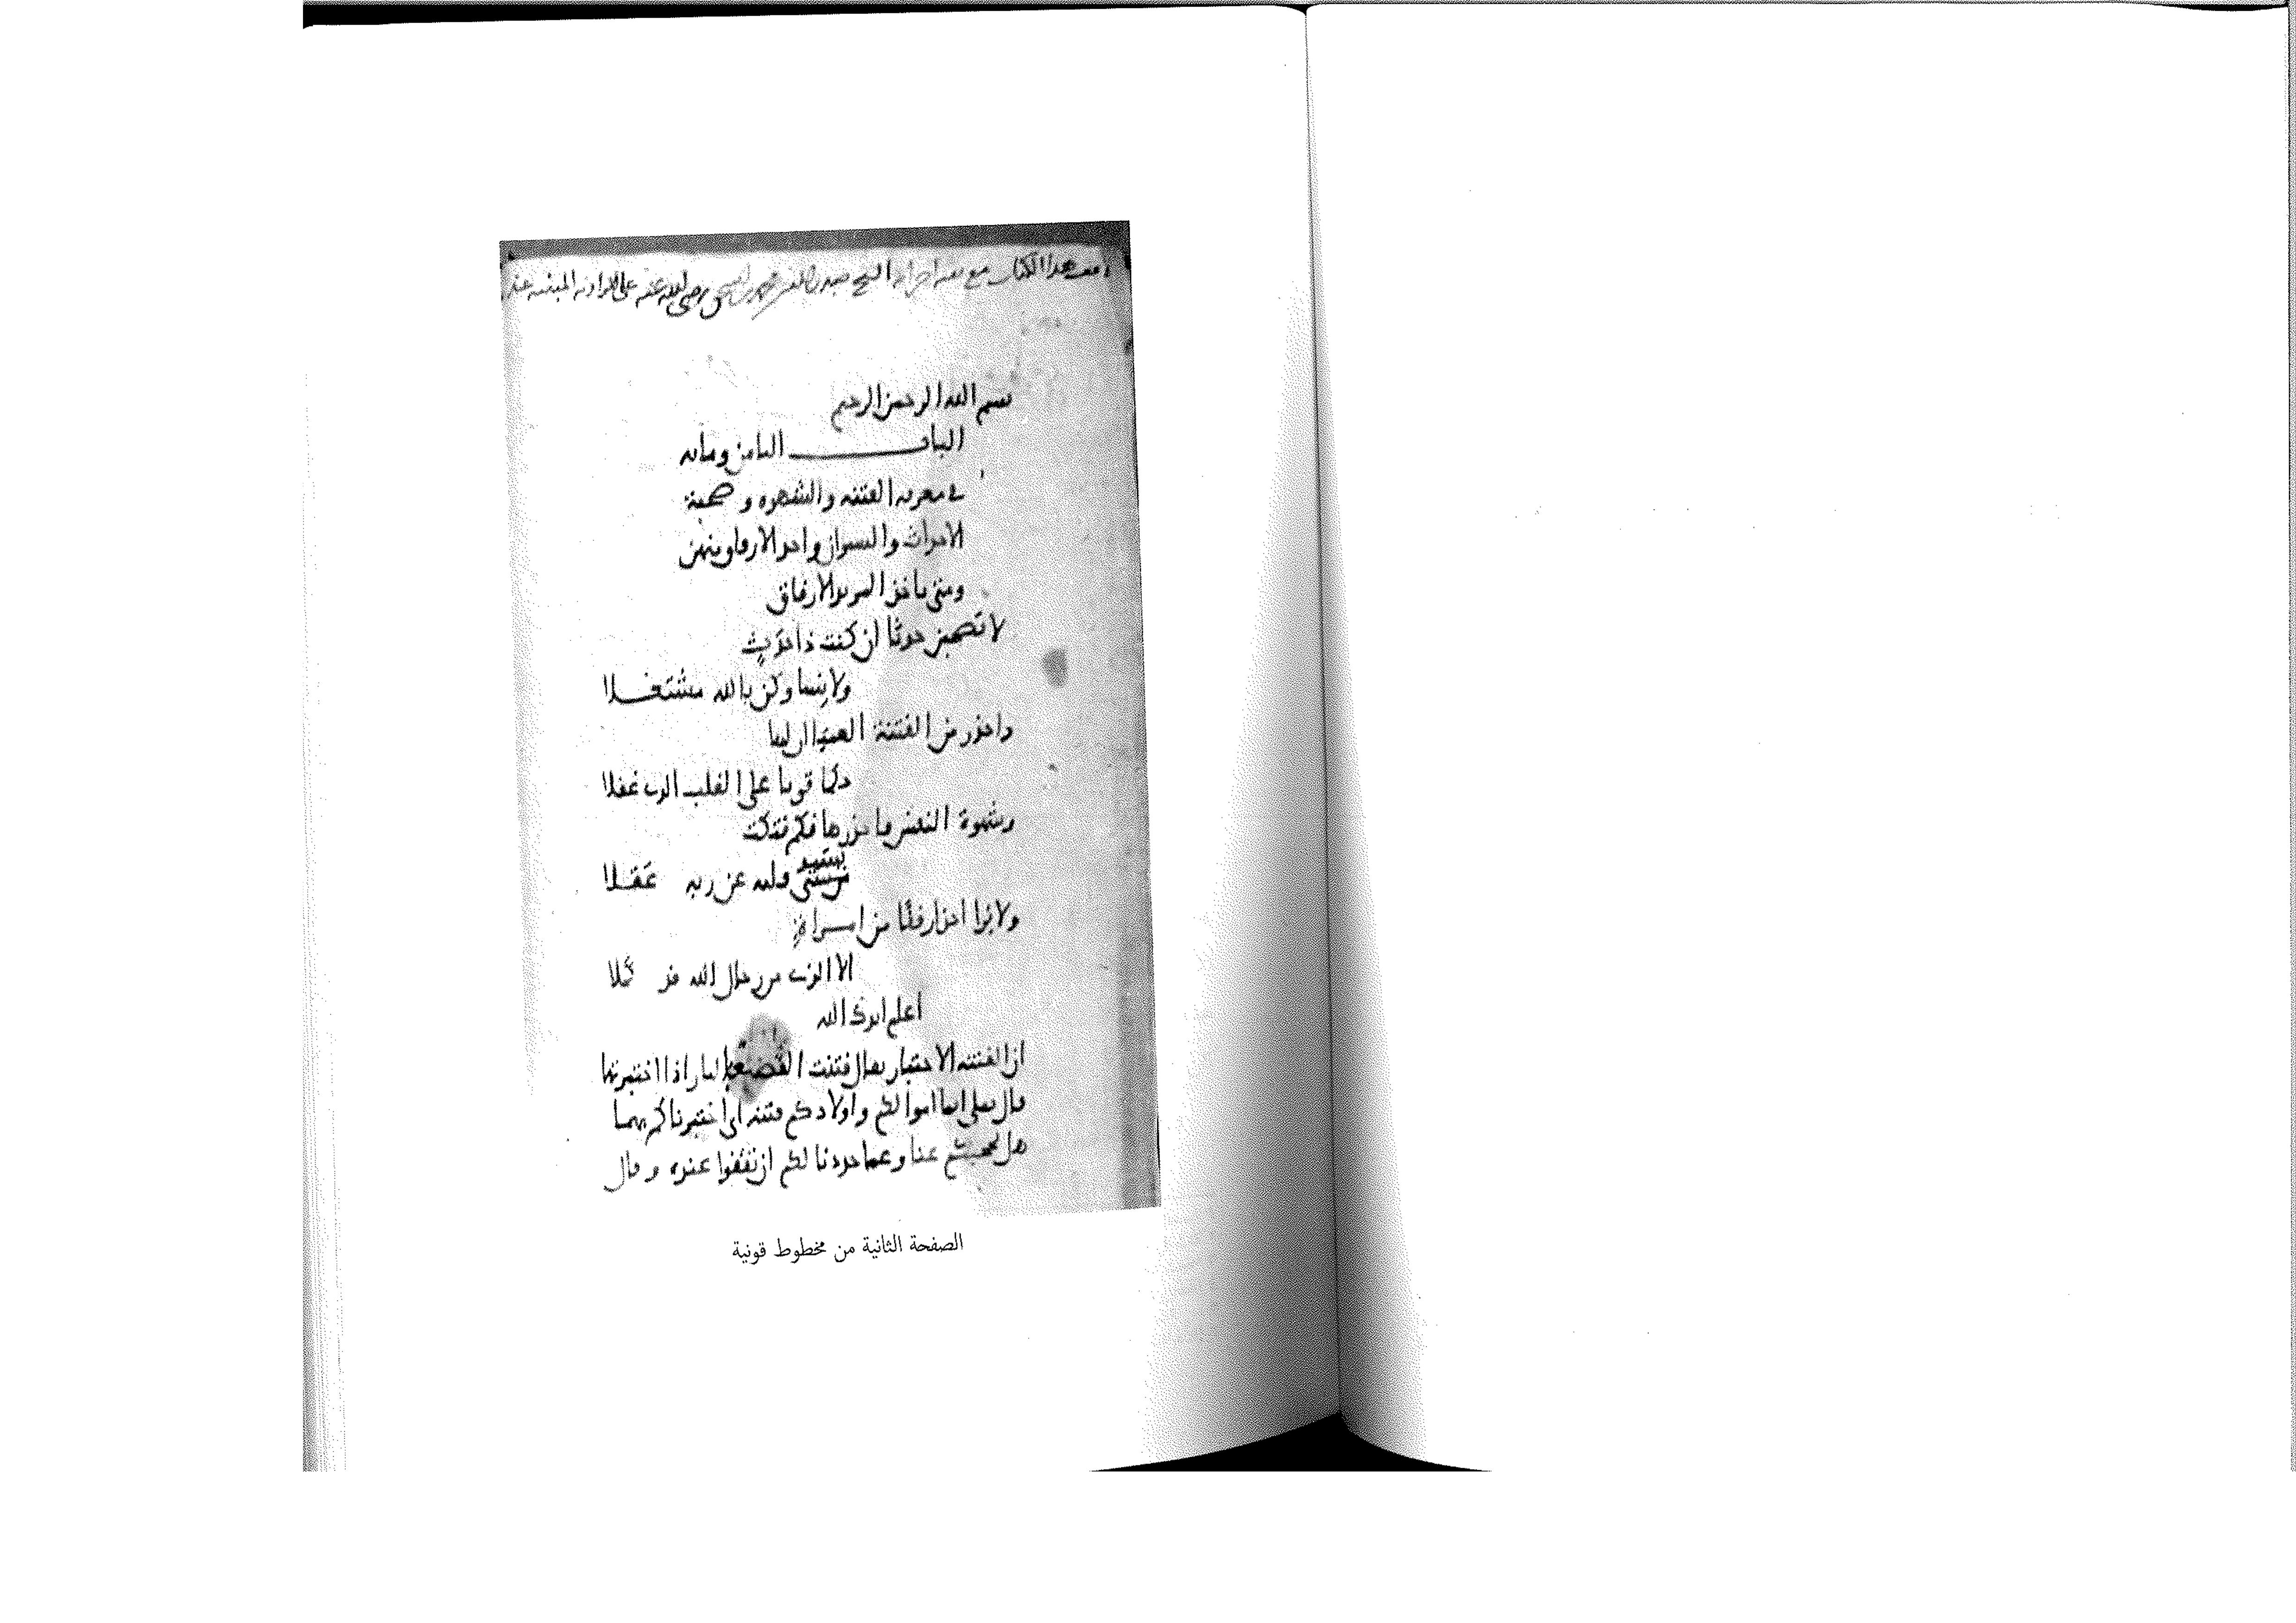 هذا الكتاب مع الشيخ محمد بن اسحق رضي الله عنه على
بسم الله الرحمن الرحيم
الباب الثامن ومائة
في معرفة الفتنة والشهوة وصحبة
الاحداث والنسوان واخذ الارفاق منهن
ومتى ياخذ المريد الارفاق
لا تصحبن حدثا ان كنت ذا حدث
ولا نسا وكن بالله مشتغلا
واحذر من الفتنة العميا ان لها
حكما قويا على القلب الذي غفلا
وشهوة النفس فاحذرها فكم فتكت
بسيد قلبه عن ربه غفلا
ولا ترا اخذ ارفقا من امراة
الا الذي من رجال الله قد كملا
اعلم ايدك الله
ان الفتنة الاختبار يقال فتنت الفضة بالنار اذا اختبرتها
قال تعالى انما اموالكم واولادكم فتنة اي اختبرناكم بهما
هل تحجبكم عنا وعما حددنا لكم ان تقفوا عنده وقال
الصفحة الثانية من مخطوط قونية